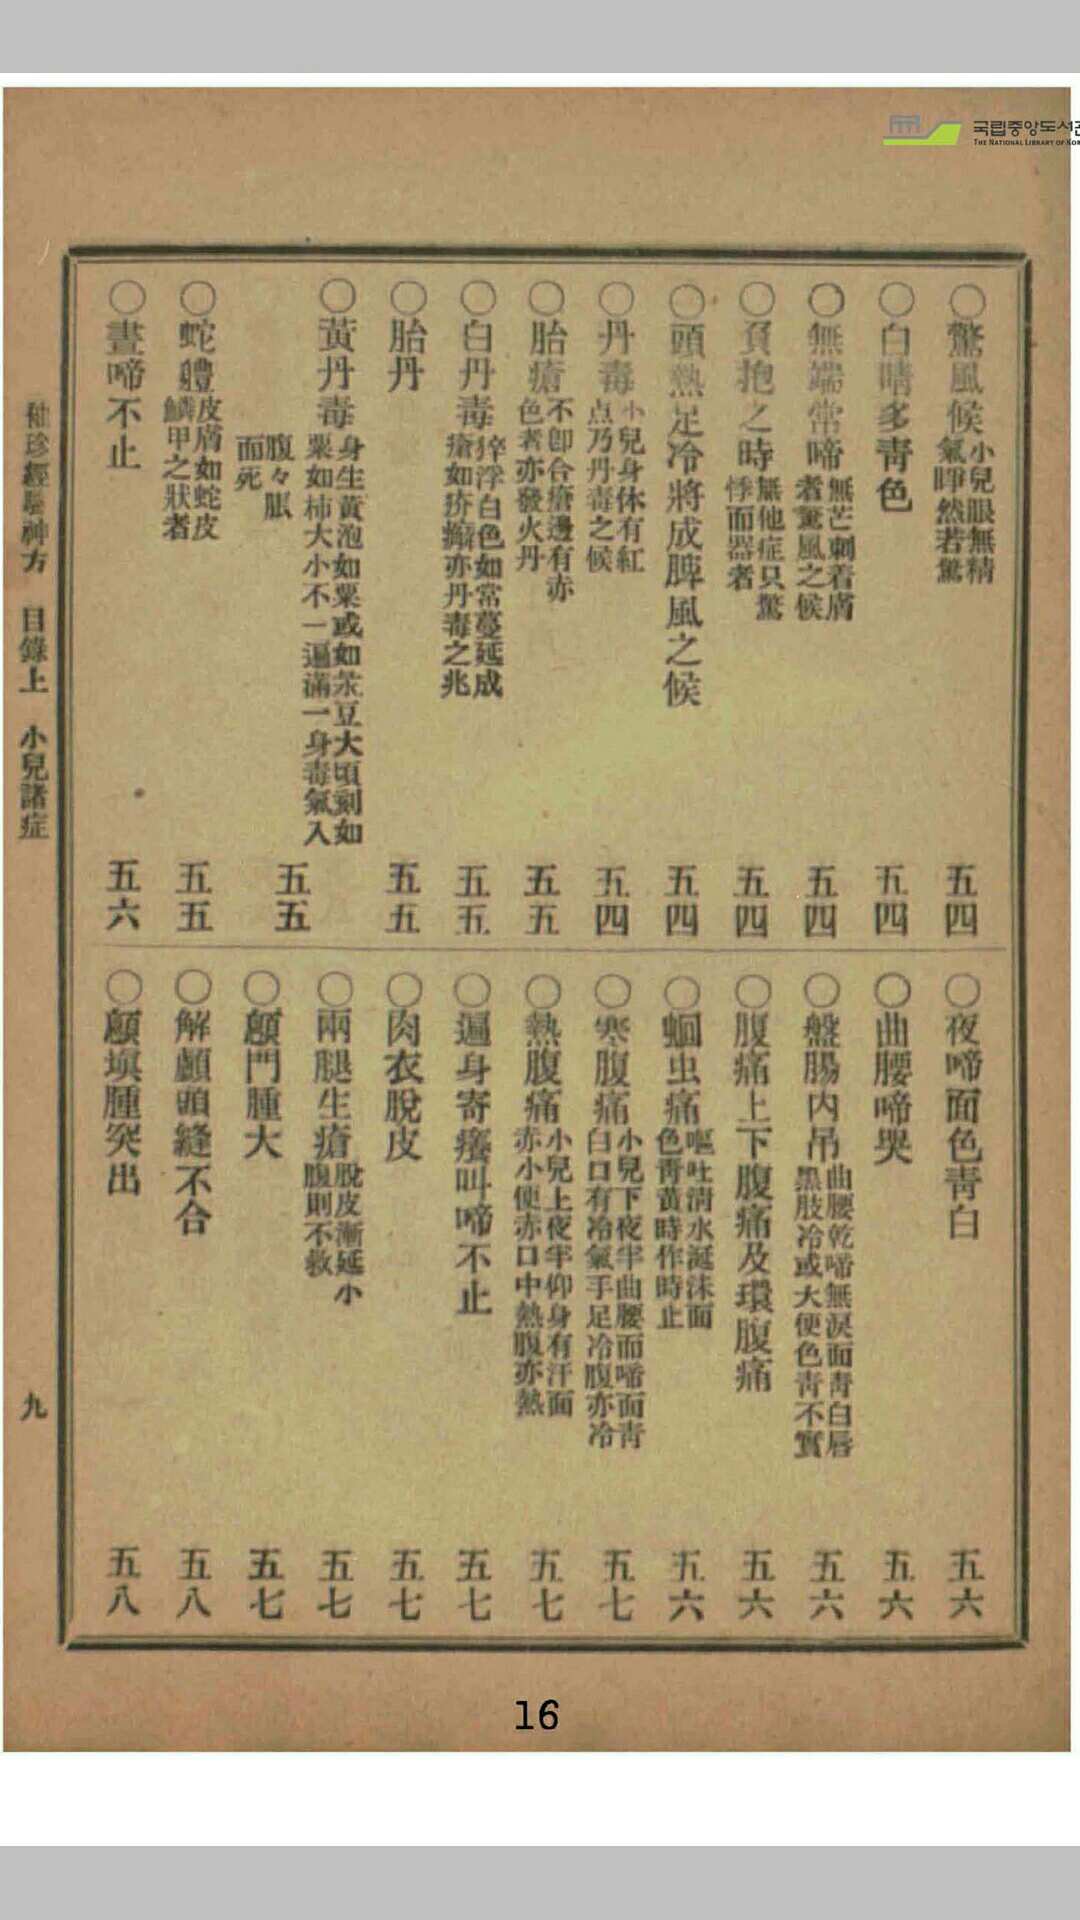 국립중앙도서관
THE NATIONAL LIBRARY OF KOR
○驚風候 小兒眼無精氣啤然若驚 五四
○白睛多靑色 五四
○無端常啼 無芒刺着膚者驚風之候 五四
○負抱之時 無他症只驚悸而器者 五四
○頭熱足冷將成脾風之候 五四
○丹毒 小兒身体有紅点乃丹毒之候 五四
○胎瘡 不卽合瘡邊有赤色者亦發火丹 五五
○白丹毒 猝浮白色如常蔓延成瘡如疥癬亦丹毒之兆 五五
○胎丹 五五
○黃丹毒 身生黃泡如粟或如䒷豆大頃刻如粟如柿大小不一遍滿一身毒氣入腹々脹而死 五五
○蛇軆 皮膚如蛇皮鱗甲之狀者 五五
○晝啼不止 五六
○夜啼面色靑白 五六
○曲腰啼哭 五六
○盤腸內吊 曲腰乾啼無淚面靑白唇黑肢冷或大便色靑不實 五六
○腹痛上下腹痛及環腹痛 五六
○蛔虫痛 嘔吐淸水涎沫面色靑黃時作時止 五六
○寒腹痛 小兒下夜半曲腰而啼面靑白口有冷氣手足冷腹亦冷 五七
○熱腹痛 小兒上夜半仰身有汗面赤小便赤口中熱腹亦熱 五七
○遍身寄癢叫啼不止 五七
○肉衣脫皮 五七
○兩腿生瘡 脫皮漸延小腹則不救 五七
○顖門腫大 五七
○解顱頭縫不合 五八
○顖塡腫突出 五八
袖珍經驗神方 目錄上 小兒諸症 九
16